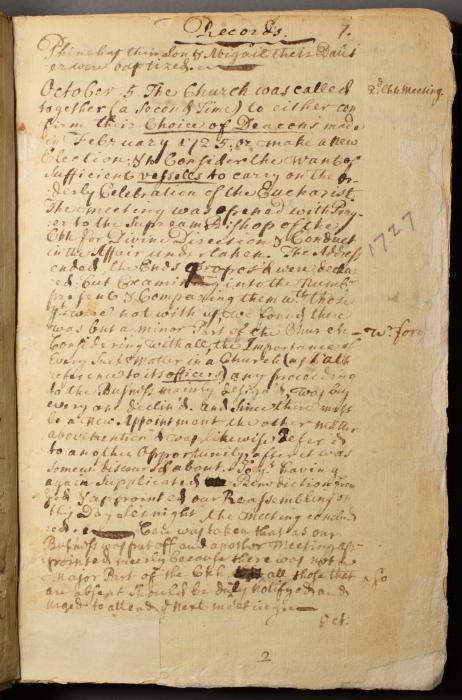 Records. 7.
Phinehas their Son & Abigail their Daur
er were baptized.
October 5 The Church was called 2d Chh Meeting.
together (a Second Time) to either con
firm their Choice of Deacons made
in February 1725; or make a New
Election; & to Consider the want of
Sufficient vessells to carry on the or
derly Celebration of the Eucharist.
The meeting was opened with Pray
er to the Supream Bishop of the
Chh for Divine Direction & Conduct 1727
in the Affair undertaken. The Address
ended, the Ends propos'd were decla
red: but Examining into the Numbr
present & Comparing them wth those
yt were not with us, we found there
was but a minor Part of the Church
Considering withall, the Importance of
Every Such Matter in a Church (as hath
reference to its officers) any proceeding
to the Business mainly design'd, was by
every one declin'd. and Since there must
be a New Appointment the other matter
abovemention'd was likewise defer'd
to another Opportunity, after it was
Somew. discours'd about. So yn having
again Supplicated Benediction
& appointed our Reassembling on
this Day Se'ennight the meeting conclud
ed. Care was taken that as our
Business was put off and another Meeting ap-
pointed meerly because there was not a
Major Part of the Chh, all those that so
are absent should be duly notifyed and
urged to attend ye next meeting.
Oct:
2